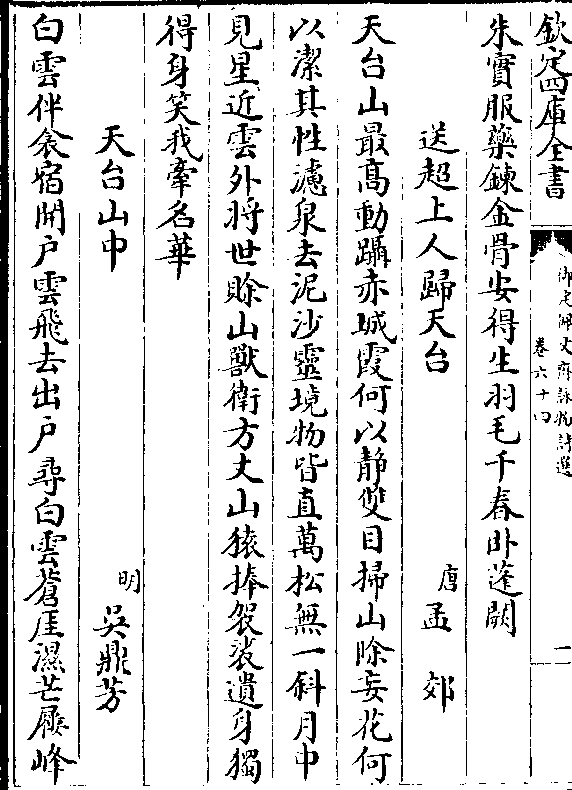 欽定四庫全書
御定佩文齋詠物詩選
卷六十四
二
朱實服藥鍊金骨安得生羽毛千春卧蓬闕
送超上人歸天台
唐 孟郊
天台山最高動躡赤城霞何以静雙目掃山除妄花何
以潔其性濾泉去泥沙靈境物皆直萬松無一斜月中
見星近雲外將世賒山獸衛方丈山猿捧袈裟遺身獨
得身笑我牽名華
天台山中
明 吳鼎芳
白雲伴衾宿開户雲飛去出户尋白雲蒼厓濕芒屨峰